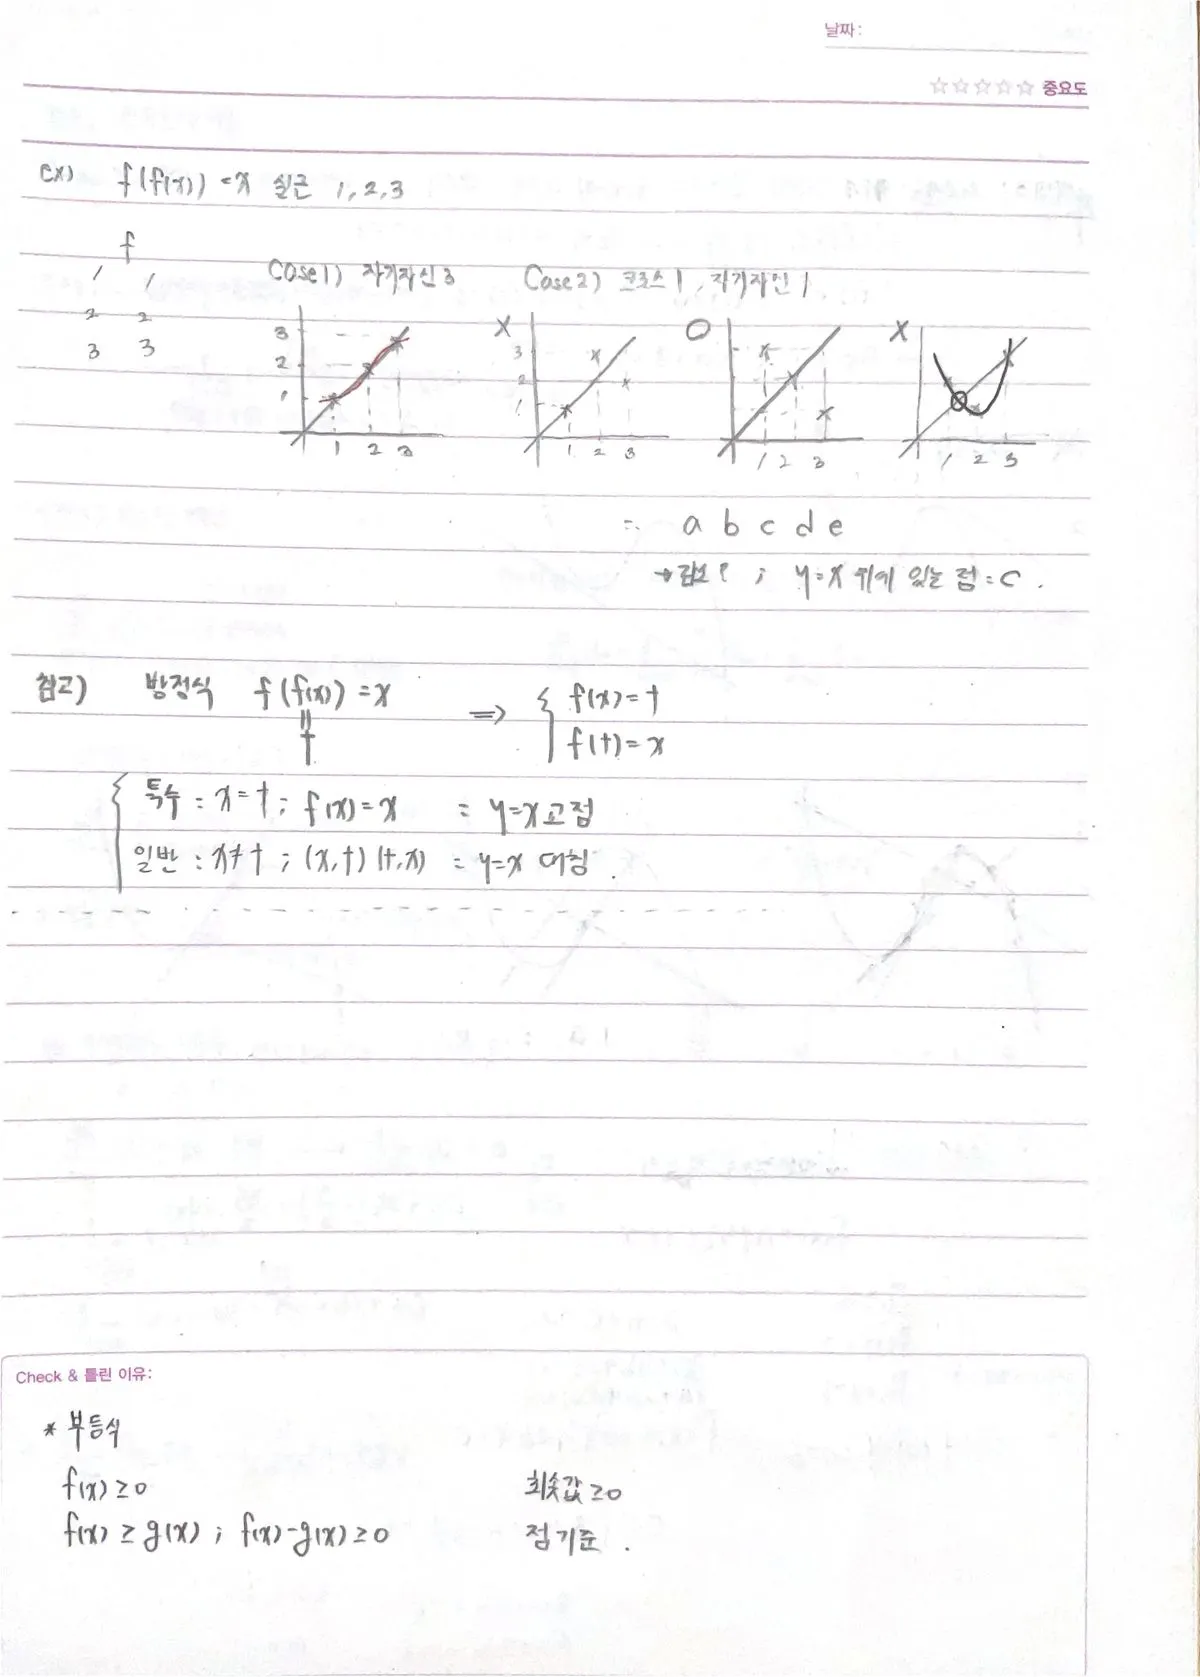 날짜:
☆☆☆☆☆ 중요도
ex) f(f(x)) = x 실근 1, 2, 3
f
1 1
2 2
3 3
Case1) 자기자신 3
Case2) 크로스 1, 자기자신 1
3
2
1
1 2 3
X
3
2
1
1 2 3
O
1 2 3
X
1 2 3
∴ a b c d e
→ 감소 ; y=x 위에 있는 점 = c .
참고) 방정식 f(f(x)) = x ⇒ { f(x) = t
t f(t) = x
특수 : x = t ; f(x) = x = y=x 교점
일반 : x ≠ t ; (x, t) (t, x) = y=x 대칭 .
Check & 틀린 이유:
* 부등식
f(x) ≥ 0 최솟값 ≥ 0
f(x) ≥ g(x) ; f(x) - g(x) ≥ 0 점 기준 .